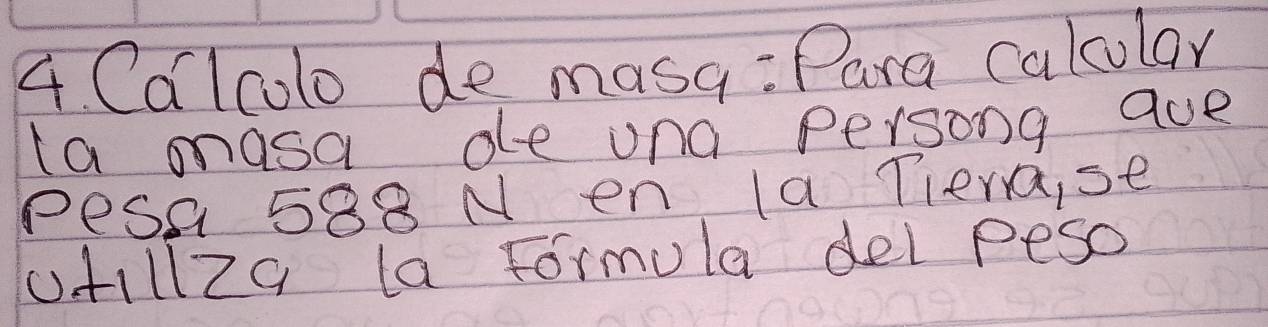 4. Cálculo de masa: Para calcular
la masa de una persona que
pesa 588 N en la Tierra, se
utiliza la fórmula del peso